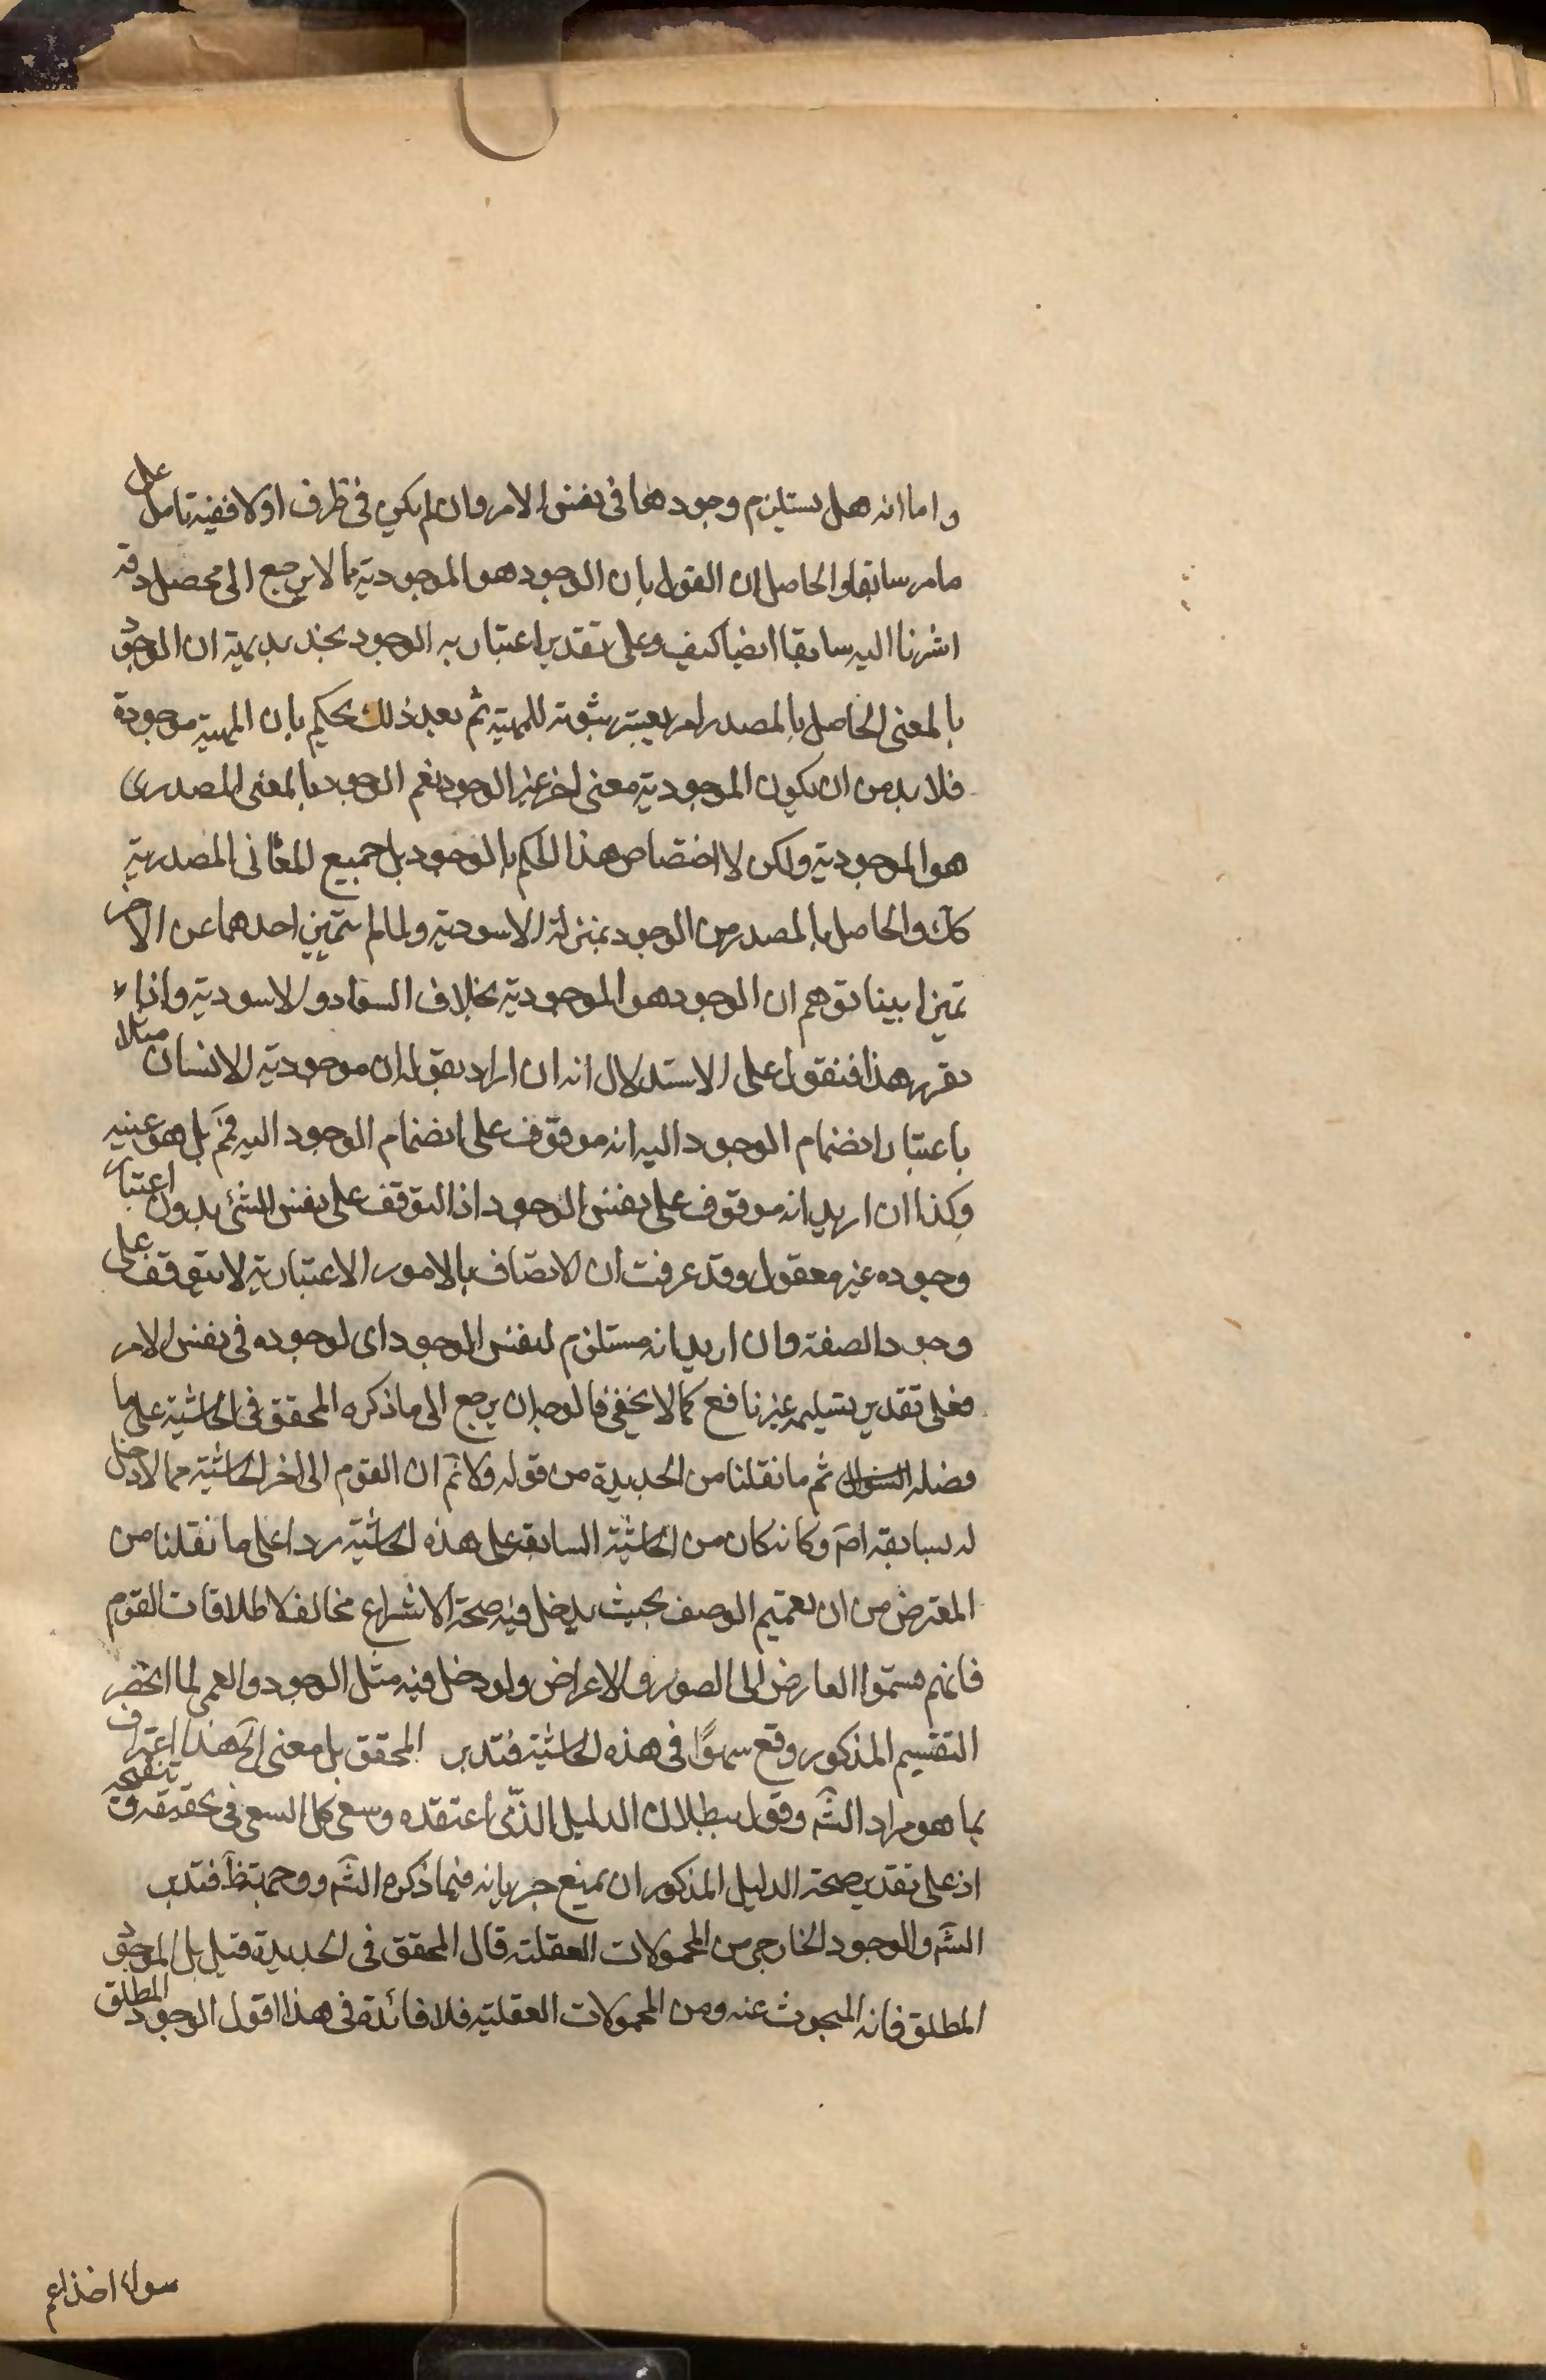 واما انه هل يستلزم وجودهما فى نفس الامر وان لم يكن فى ظرف اولا ففيه تامل على
ما مر سابقا والحاصل ان القول بان الوجود هو الموجودية مما لا يرجع الى محصل وقد
اشرنا اليه سابقا ايضا كيف وعلى تقدير اعتبارية الوجود نجد بديهية ان الوجود
بالمعنى الحاصل بالمصدر امر يعتبر ثبوته للمهية ثم بعد ذلك يحكم بان المهية موجودة
فلا بد من ان يكون الموجودية معنى اخر غير الوجود نعم الوجود بالمعنى المصدرى
هو الموجودية ولكن لا اختصاص هذا الحكم بالوجود بل جميع المعانى المصدرية
كك والحاصل بالمصدر من الوجود بمنزلة الاسودية ولما لم يتميز احدهما عن الاخر
تميزا بينا توهم ان الوجود هو الموجودية بخلاف السواد والاسودية واذا
تقرر هذا فنقول على الاستدلال انه ان اراد بقوله ان موجودية الانسان مثلا
باعتبار انضمام الوجود اليه انه موقوف على انضمام الوجود اليه فمم بل هو عينه
وكذا ان اريد انه موقوف على نفس الوجود اذ التوقف على نفس الشئ بدون اعتبار
وجوده غير معقول وقد عرفت ان الاتصاف بالامور الاعتبارية لا يتوقف على
وجود الصفة وان اريد انه مستلزم لنفس الوجود اى لوجوده فى نفس الامر
فعلى تقدير تسليمه غير نافع كما لا يخفى فالوجه ان يرجع الى ما ذكره المحقق فى الحاشية على ما
فصله السؤال ثم ما نقلنا من الجديدة من قوله ولا نم ان القوم الى اخر الحاشية مما لا دخل
له بسابقه اصم وكانه كان من الحاشية السابقة على هذه الحاشية ردا على ما نقلنا من
المعترض من ان تعميم الوصف بحيث يدخل فيه صحة الانتزاع مخالف لاطلاقات القوم
فانهم قسموا العارض الى الصور والاعراض ولو دخل فيه مثل الوجود والعمى لما انحصر
التقسيم المذكور وقع سهوًا فى هذه الحاشية فتدبر المحقق بل معنى الخ هذا اعتراف
بما هو مراد الشم وقول ببطلان الدليل الذى اعتقده وسعى كل السعى فى تحقيقه وتنقيحه
اذ على تقدير صحة الدليل المذكور ان يمنع جريانه فيما ذكره الشم ووجهه ظ فتدبر
الشم والوجود الخارجى من المحمولات العقلية قال المحقق فى الجديدة قيل بل الوجود
المطلق فانه المبحوث عنه ومن المحمولات العقلية فلا فائدة فى هذا اقول الوجود المطلق
سواء اخذ اعم